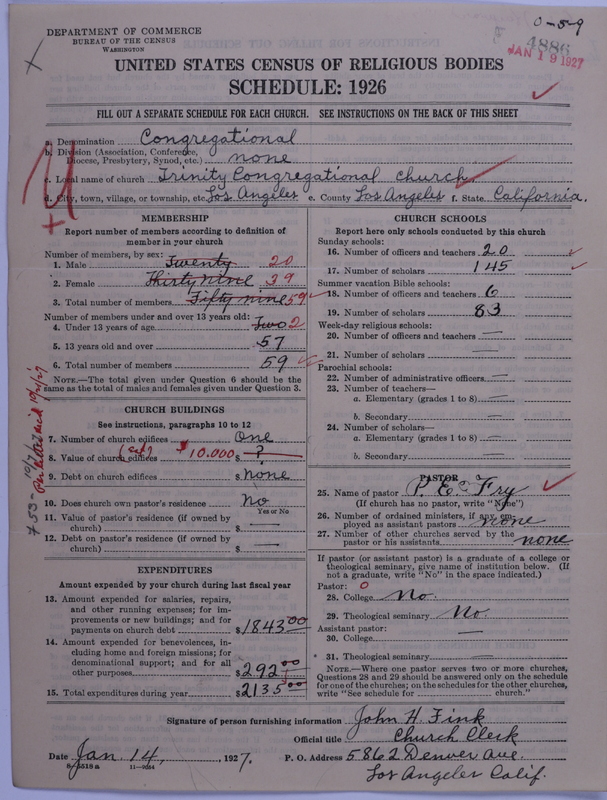 0-5-9
DEPARTMENT OF COMMERCE
BUREAU OF THE CENSUS
WASHINGTON
4886
JAN 19 1927
UNITED STATES CENSUS OF RELIGIOUS BODIES
SCHEDULE: 1926
FILL OUT A SEPARATE SCHEDULE FOR EACH CHURCH. SEE INSTRUCTIONS ON THE BACK OF THIS SHEET
a. Denomination Congregational
b. Division (Association, Conference,
Diocese, Presbytery, Synod, etc.) none
c. Local name of church Trinity Congregational church
d. City, town, village, or township, etc. Los Angeles e. County Los Angeles f. State California.
MEMBERSHIP
Report number of members according to definition of
member in your church
Number of members, by sex:
1. Male Twenty 20
2. Female Thirty nine 39
3. Total number of members Fifty nine 59
Number of members under and over 13 years old:
4. Under 13 years of age Two 2
5. 13 years old and over 57
6. Total number of members 59
NOTE.—The total given under Question 6 should be the
same as the total of males and females given under Question 3.
CHURCH BUILDINGS
See instructions, paragraphs 10 to 12
7. Number of church edifices one
8. Value of church edifices $10.000 $ ?
9. Debt on church edifices $ none
10. Does church own pastor's residence No
Yes or No
11. Value of pastor's residence (if owned by
church) $ —
12. Debt on pastor's residence (if owned by
church) $ —
EXPENDITURES
Amount expended by your church during last fiscal year
13. Amount expended for salaries, repairs,
and other running expenses; for im-
provements or new building; and for
payments on church debt $1843 00
14. Amount expended for benevolences, in-
cluding home and foreign missions; for
denominational support; and for all
other purposes $292 00
15. Total expenditures during year $2135 00
CHURCH SCHOOLS
Report here only schools conducted by this church
Sunday schools:
16. Number of officers and teachers 20
17. Number of scholars 145
Summer vacation Bible schools:
18. Number of officers and teachers 6
19. Number of scholars 83
Week-day religious schools:
20. Number of officers and teachers —
21. Number of scholars —
Parochial schools:
22. Number of administrative officers —
23. Number of teachers—
a. Elementary (grades 1 to 8) —
b. Secondary —
24. Number of scholars—
a. Elementary (grades 1 to 8) —
b. Secondary —
PASTOR
25. Name of pastor P. E. Fry
(If church has no pastor, write "None")
26. Number of ordained ministers, if any, em-
ployed as assistant pastors none
27. Number of other churches served by the
pastor or his assistants none
If pastor (or assistant pastor) is a graduate of a college or
theological seminary, give name of institution below. (If
not a graduate, write "No" in the space indicated.)
Pastor: 0
28. College No.
29. Theological seminary No.
Assistant pastor:
30. College —
31. Theological seminary —
NOTE.—Where one pastor serves two or more churches,
Questions 28 and 29 should be answered only on the schedule
for one of the churches; on the schedules for the other churches,
write "See schedule for church."
Signature of person furnishing information John H. Fink
Official title Church Clerk
Date Jan. 14, 1927. P. O. Address 5862 Denver Ave.
8-5518a 11-9054
Los Angeles Calif.